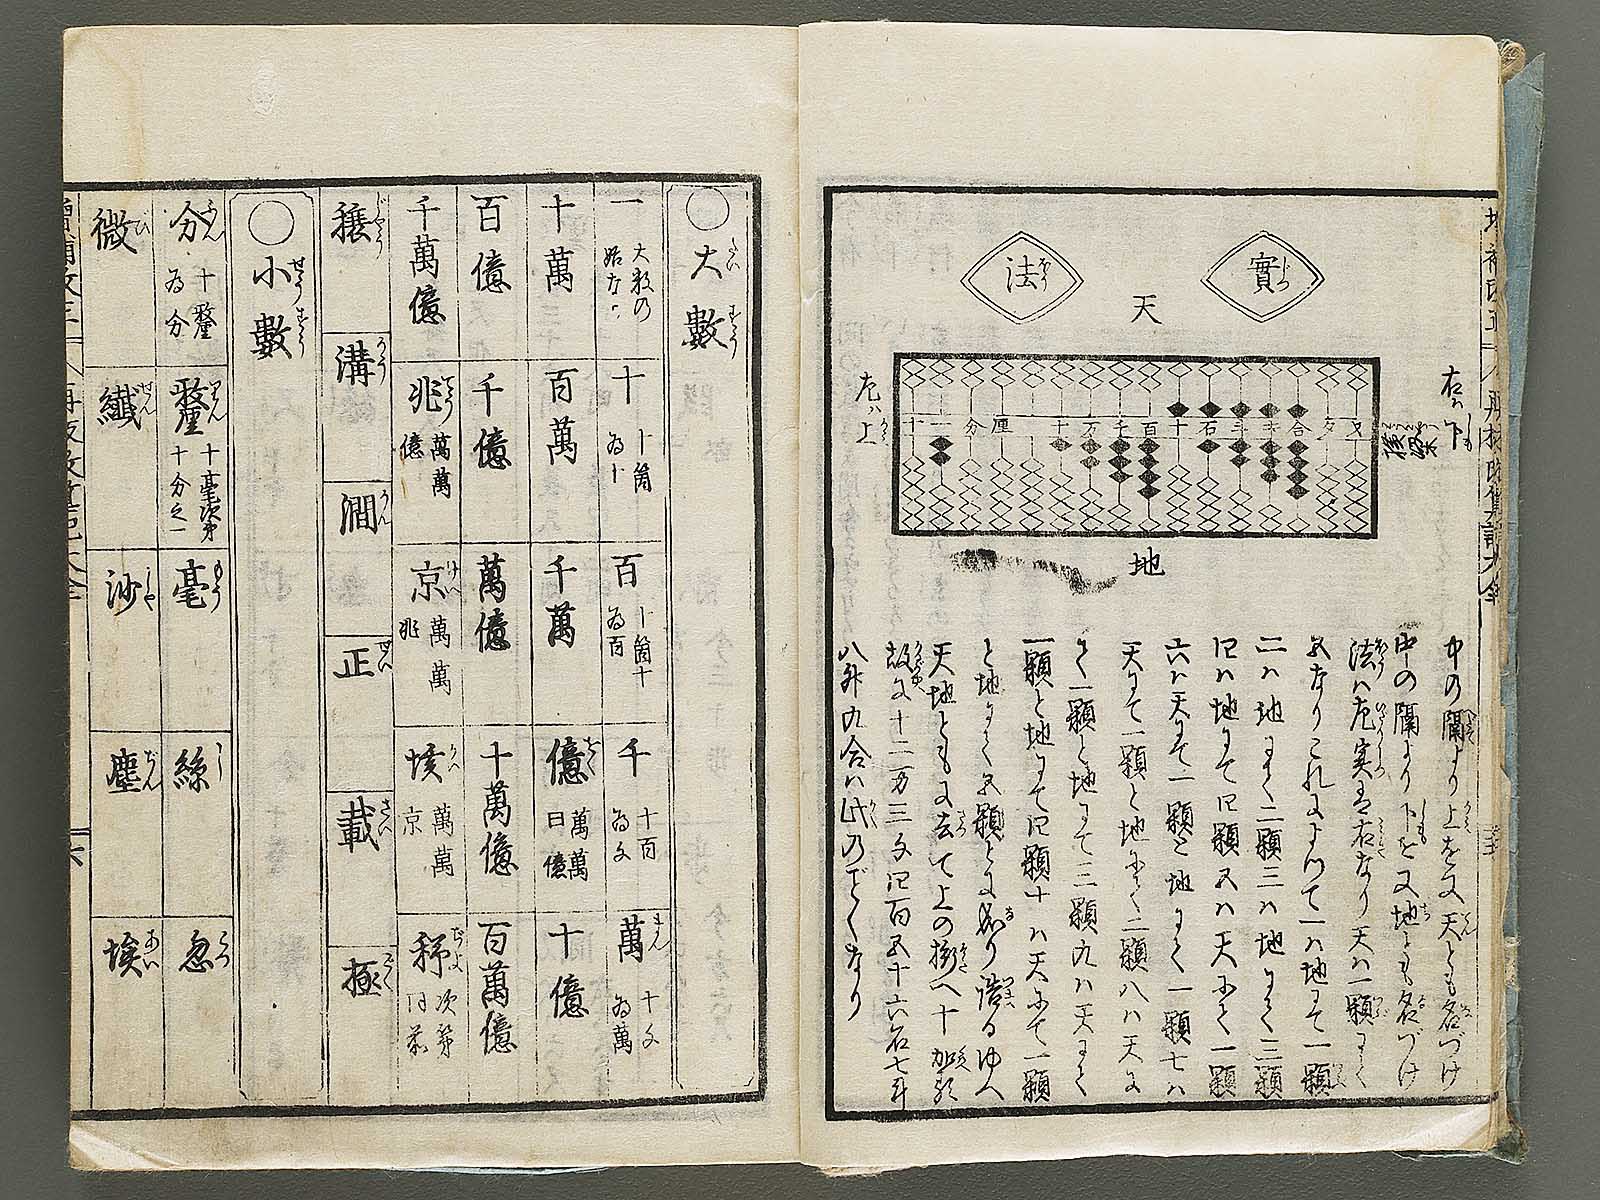 實
法
天
右ハ下
梁
左ハ上
十一分厘十万千百十石斗升合夕又
地
中の隔より上を又天とも名づけ
中の隔より下を又地とも名づけ
法ハ左実ハ右なり天ハ一顆にて
五なりこれによつて一ハ地にて一顆
二ハ地にて二顆三ハ地にて三顆
四ハ地にて四顆五ハ天にて一顆
六ハ天にて一顆と地にて一顆七ハ
天にて一顆と地にて二顆八ハ天に
て一顆と地にて三顆九ハ天にて
一顆と地にて四顆十ハ天にて一顆
と地にて五顆とに成り詰るゆへ
天地ともに去て上の桁へ十加る
故に十二万三千四百五十六石七斗
八升九合ハ此のごとくなり
○大數
一 大数の始なり
十 十箇為十
百 十箇十為百
千 十百為千
萬 十千為萬
十萬
百萬
千萬
億 萬萬曰億
十億
百億
千億
萬億
十萬億
百萬億
千萬億
兆 萬萬億
京 萬萬兆
垓 萬萬京
秭 次第同前
穰
溝
澗
正
載
極
○小數
分 十釐為分
釐 十毫次第十分之一
毫
絲
忽
微
纎
沙
塵
埃